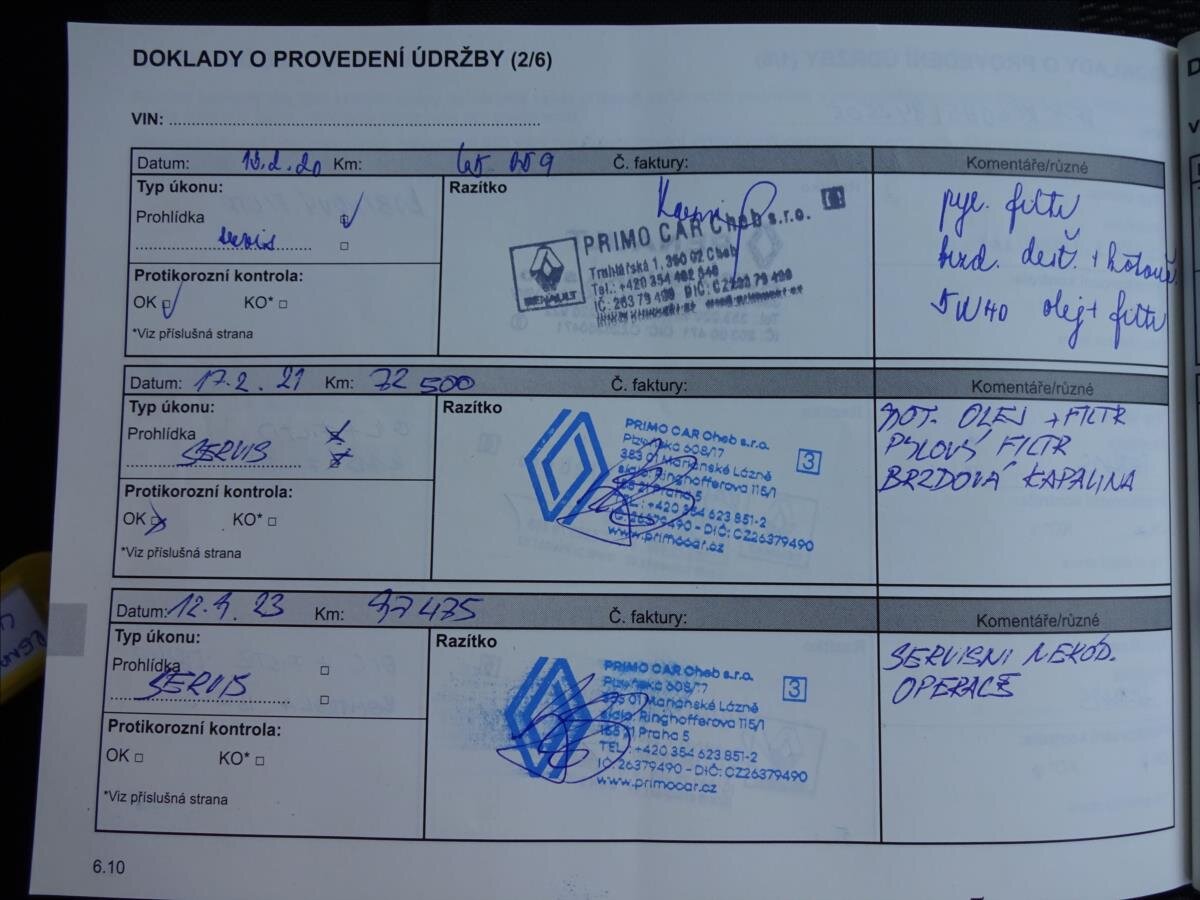 DOKLADY O PROVEDENÍ ÚDRŽBY (2/6)
VIN:
Datum: 13.2.20 Km: Č. faktury: Komentáře/různé
Typ úkonu: Razítko
Prohlídka
servis
Protikorozní kontrola:
OK KO*
*Viz příslušná strana
PRIMO CAR Cheb s.r.o.
Truhlářská 1, 350 02 Cheb
Tel.: +420 354
IČ: 263 79 490 DIČ: CZ263 79 490
RENAULT
pyl. filtr
brzd. dest. + kotouč
5W40 olej + filtr
Datum: 17.2.21 Km: 72 500 Č. faktury: Komentáře/různé
Typ úkonu: Razítko
Prohlídka
SERVIS
Protikorozní kontrola:
OK KO*
*Viz příslušná strana
PRIMO CAR Cheb s.r.o.
Plzeňská 608/17
353 01 Mariánské Lázně
3
sídlo: Ringhofferova 115/1
155 21 Praha 5
TEL.: +420 354 623 851-2
IČ: 26379490 - DIČ: CZ26379490
www.primocar.cz
MOT. OLEJ + FILTR
PYLOVÝ FILTR
BRZDOVÁ KAPALINA
Datum: 12.4.23 Km: 97475 Č. faktury: Komentáře/různé
Typ úkonu: Razítko
Prohlídka
SERVIS
Protikorozní kontrola:
OK KO*
*Viz příslušná strana
PRIMO CAR Cheb s.r.o.
Plzeňská 608/17
353 01 Mariánské Lázně
3
sídlo: Ringhofferova 115/1
155 21 Praha 5
TEL.: +420 354 623 851-2
IČ: 26379490 - DIČ: CZ26379490
www.primocar.cz
SERVISNI NEKÓD.
OPERACE
6.10